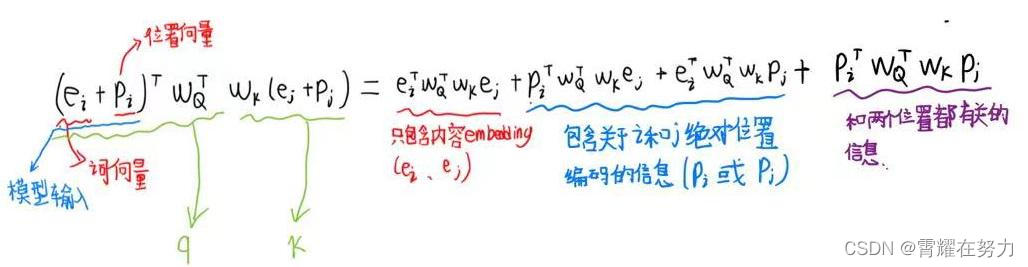 位置向量
(e_i + P_i)^T W_Q^T W_K (e_j + P_j) = e_i^T W_Q^T W_K e_j + P_i^T W_Q^T W_K e_j + e_i^T W_Q^T W_K P_j + P_i^T W_Q^T W_K P_j
词向量
模型输入
q
K
只包含内容embedding
(e_i、e_j)
包含关于i和j绝对位置
编码的信息(P_i 或 P_j)
和两个位置都有关的
信息.
CSDN @霄耀在努力